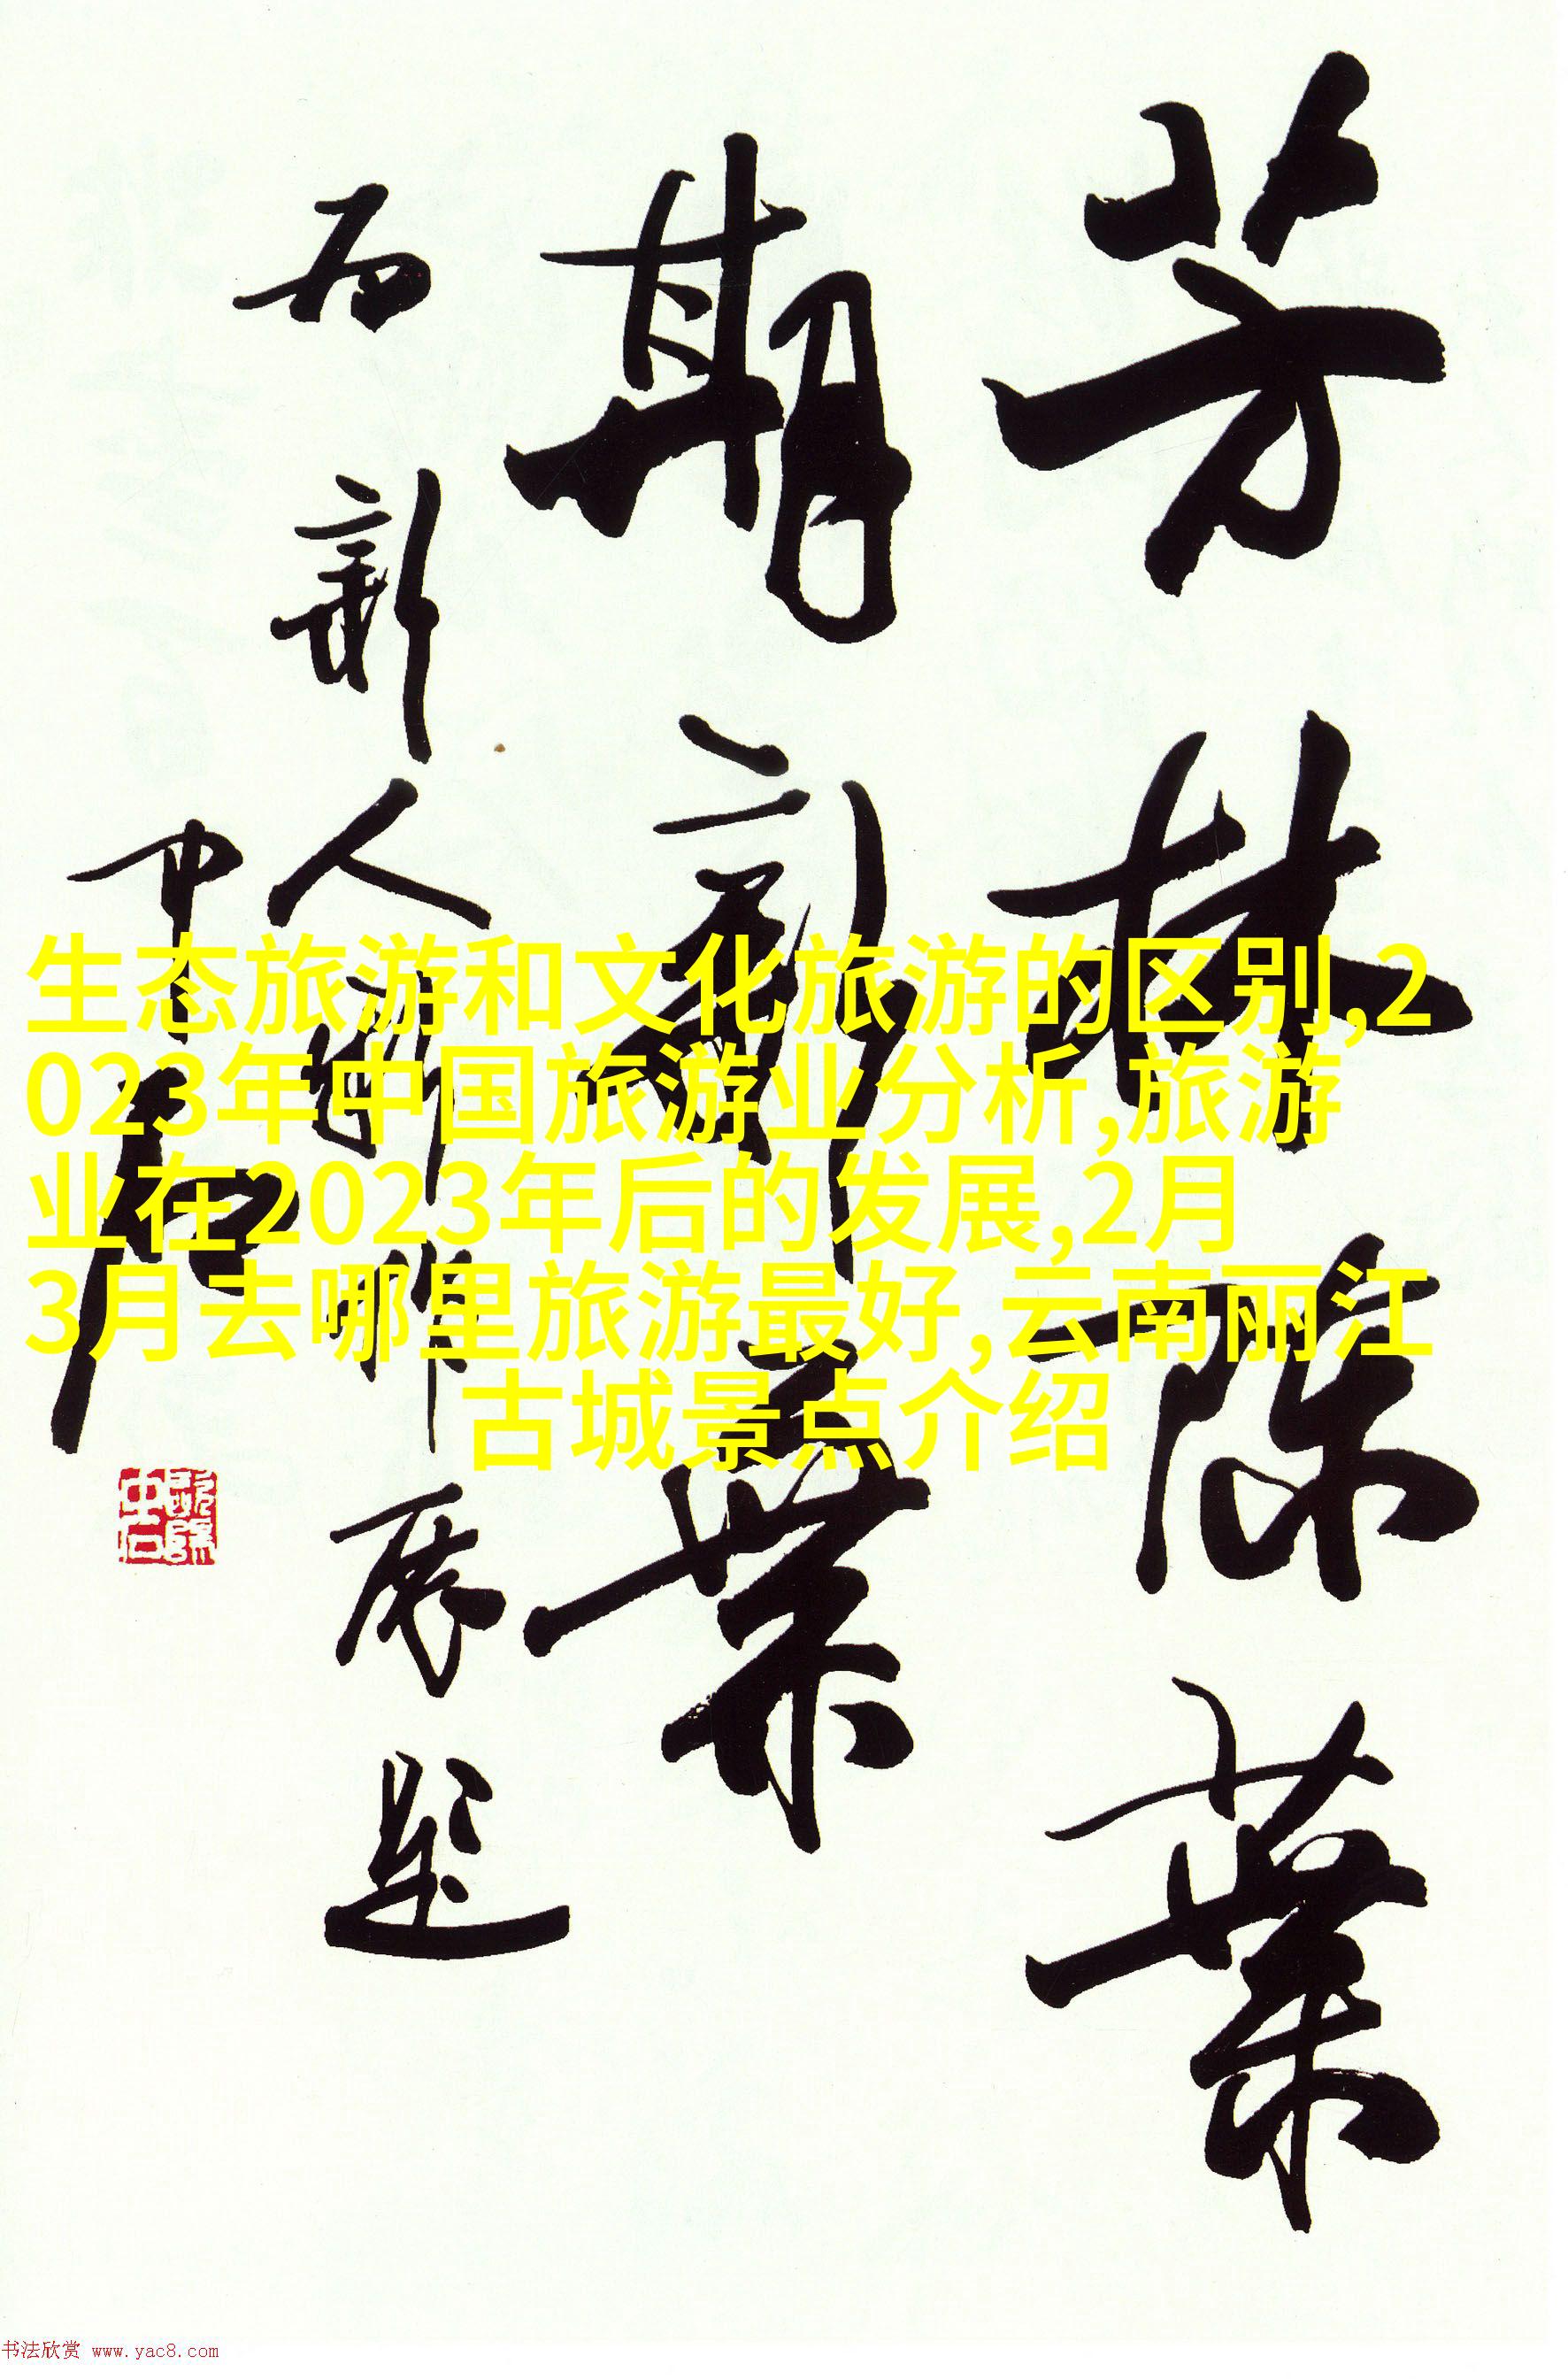 芳林陈叶
期新叶
为新人新作展题
中石
生态旅游和文化旅游的区别,2
023年中国旅游业分析,旅游
业在2023年后的发展,2月
3月去哪里旅游最好,云南丽江
古城景点介绍
书法欣赏 www.yac8.com